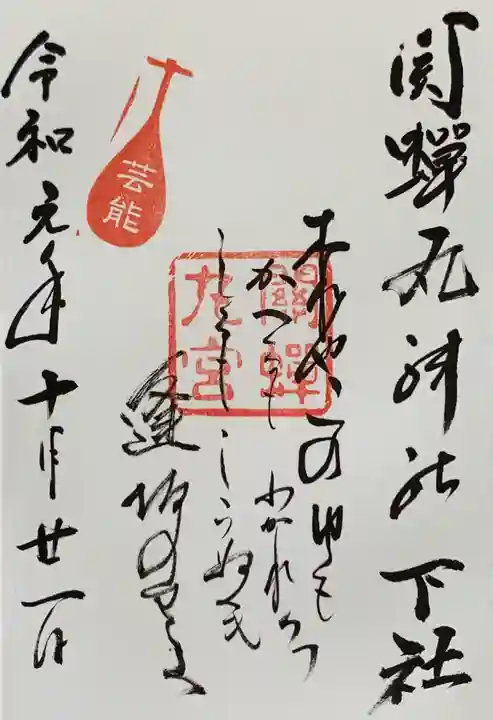 関蝉丸神社下社
これやこのゆくも
かへるもわかれつつ
しるもしらぬも
逢坂の
關蟬
丸宮
芸能
令和元年十月廿一日